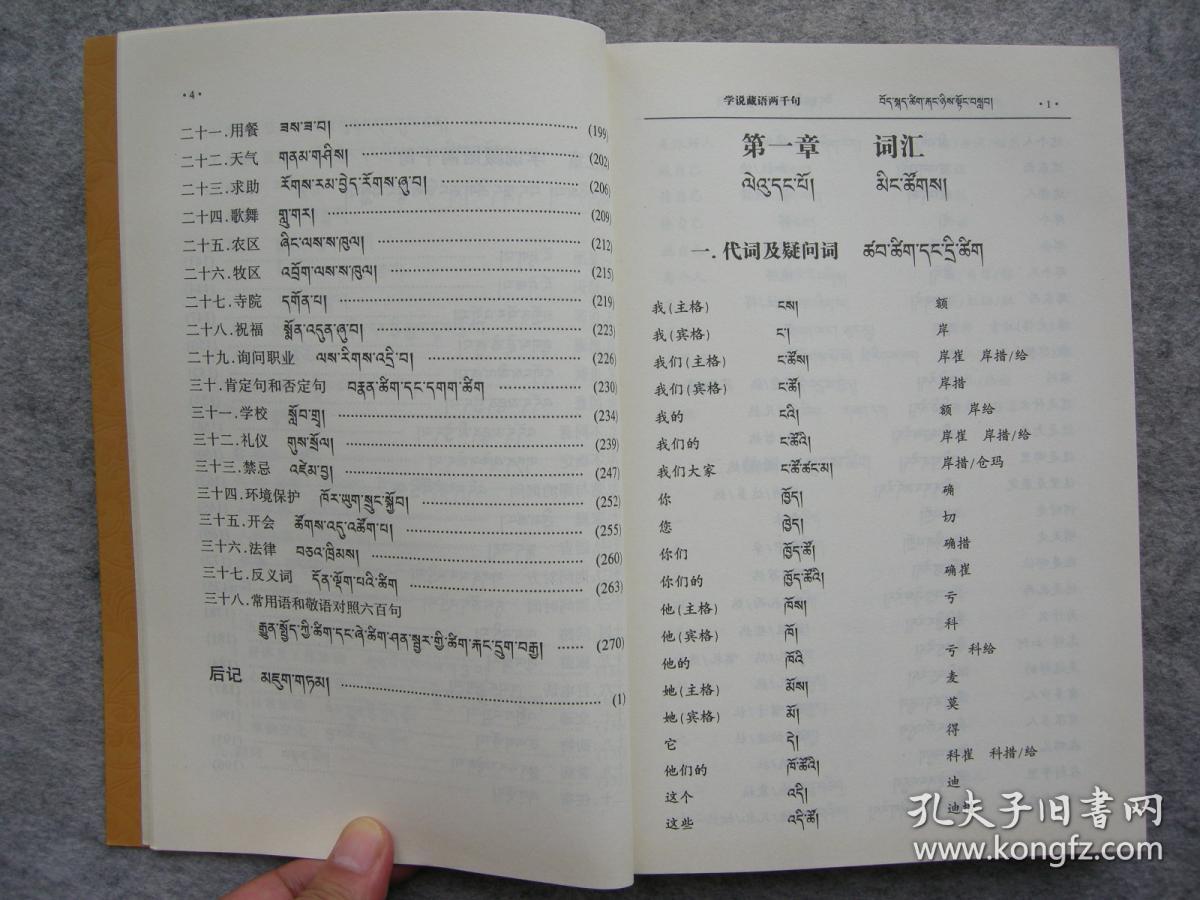 ·4·
二十一.用餐 ཟས་ཟ་བ། (199)
二十二.天气 གནམ་གཤིས། (202)
二十三.求助 རོགས་རམ་བྱེད་རོགས་ཞུ་བ། (206)
二十四.歌舞 གླུ་གར། (209)
二十五.农区 ཞིང་ལས་ས་ཁུལ། (212)
二十六.牧区 འབྲོག་ལས་ས་ཁུལ། (215)
二十七.寺院 དགོན་པ། (219)
二十八.祝福 སྨོན་འདུན་ཞུ་བ། (223)
二十九.询问职业 ལས་རིགས་འདྲི་བ། (226)
三十.肯定句和否定句 བརྣན་ཚིག་དང་དགག་ཚིག (230)
三十一.学校 སློབ་གྲྭ། (234)
三十二.礼仪 གུས་སྲོལ། (239)
三十三.禁忌 འཛེམ་བྱ། (247)
三十四.环境保护 ཁོར་ཡུག་སྲུང་སྐྱོབ། (252)
三十五.开会 ཚོགས་འདུ་འཚོག་པ། (255)
三十六.法律 བཅའ་ཁྲིམས། (260)
三十七.反义词 དོན་ལྡོག་པའི་ཚིག (263)
三十八.常用语和敬语对照六百句
རྒྱུན་སྤྱོད་ཀྱི་ཚིག་དང་ཞེ་ཚིག་ཤན་སྦྱར་གྱི་ཚིག་རྐང་དྲུག་བརྒྱ། (270)
后记 མཇུག་གཏམ། (1)
学说藏语两千句 བོད་སྐད་ཚིག་རྐང་ཉིས་སྟོང་བསླབ། ·1·
第一章 词汇
ལེའུ་དང་པོ། མིང་ཚོགས།
一.代词及疑问词 ཚབ་ཚིག་དང་དྲི་ཚིག
我(主格) ངས། 额
我(宾格) ང། 岸
我们(主格) ང་ཚོས། 岸崔 岸措/给
我们(宾格) ང་ཚོ། 岸措
我的 ངའི། 额 岸给
我们的 ང་ཚོའི། 岸崔 岸措/给
我们大家 ང་ཚོ་ཚང་མ། 岸措/仓玛
你 ཁྱོད། 确
您 ཁྱེད། 切
你们 ཁྱོད་ཚོ། 确措
你们的 ཁྱོད་ཚོའི། 确崔
他(主格) ཁོས། 亏
他(宾格) ཁོ། 科
他的 ཁོའི 亏 科给
她(主格) མོས། 麦
她(宾格) མོ། 莫
它 དེ། 得
他们的 ཁོ་ཚོའི། 科崔 科措/给
这个 འདི། 迪
这些 འདི་ཚོ། 迪
孔夫子旧书网
www.kongfz.com